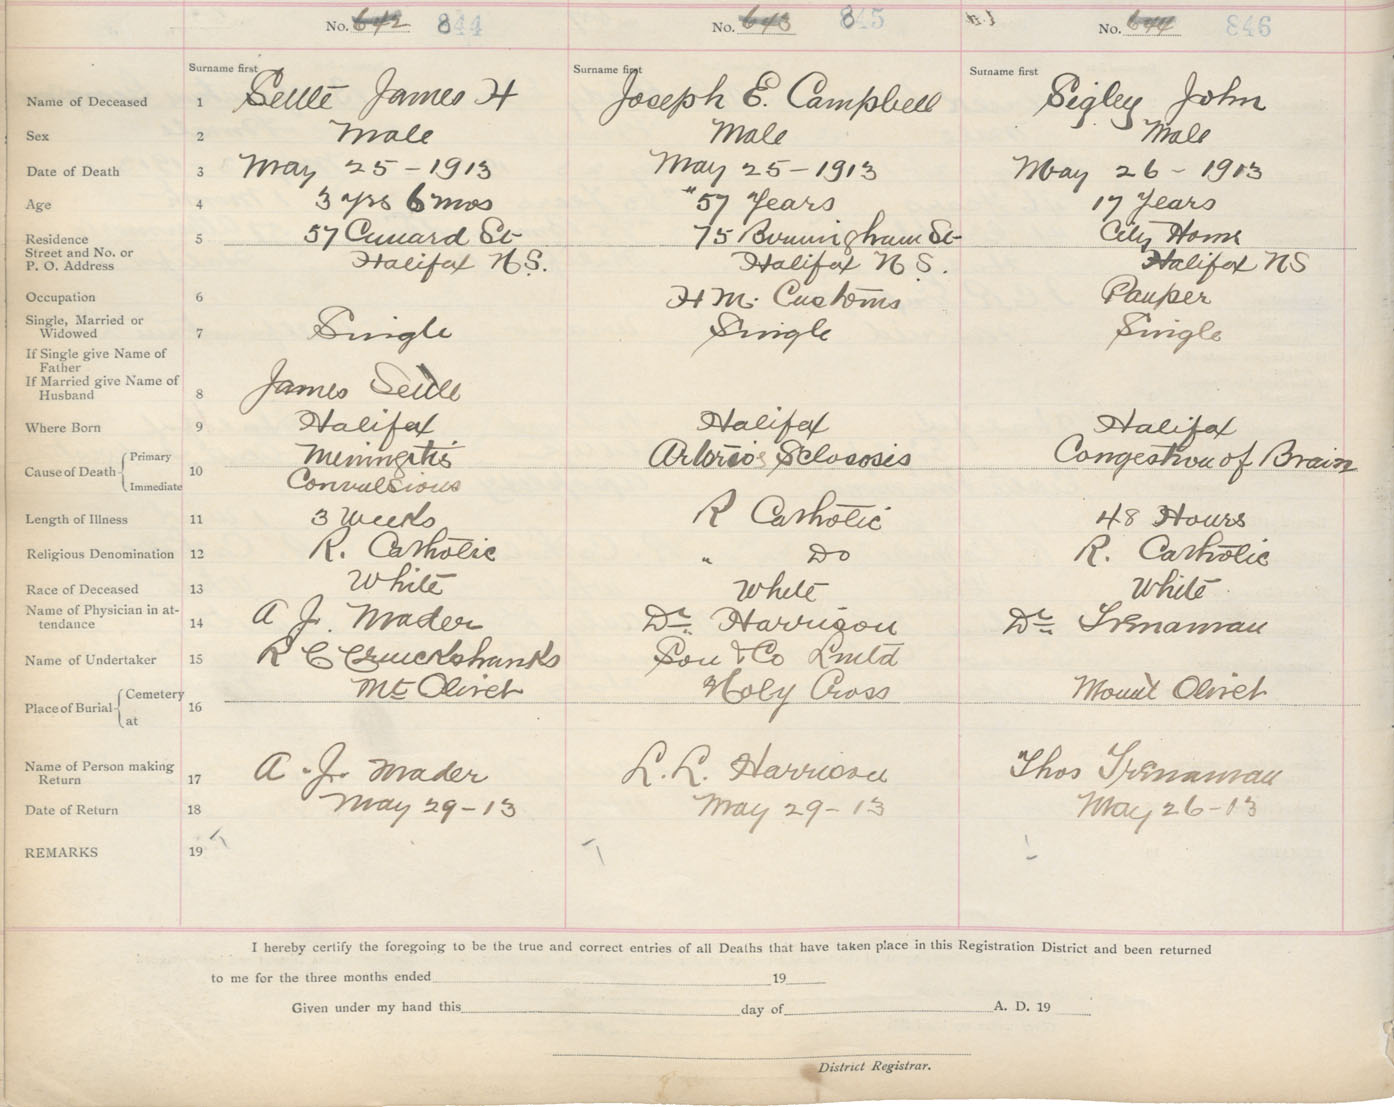 No. 642 844 No. 643 845 No. 644 846
Surname first Surname first Surname first
Name of Deceased 1 James H Joseph E. Campbell Sigley John
Sex 2 Male Male Male
Date of Death 3 May 25-1913 May 25-1913 May 26-1913
Age 4 3 yrs 6 mos "57 Years 17 Years
Residence 5 57 Cunard St 75 Birmingham St City Home
Street and No. or
P. O. Address Halifax N.S. Halifax N S. Halifax NS
Occupation 6 H M. Customs Pauper
Single, Married or
Widowed 7 Single Single Single
If Single give Name of
Father
If Married give Name of
Husband 8 James
Where Born 9 Halifax Halifax Halifax
Cause of Death Primary 10 Meningitis Sclososis Congestion of Brain
Immediate Convulsions
Length of Illness 11 3 Weeks R Catholic 48 Hours
Religious Denomination 12 R. Catholic " Do R. Catholic
Race of Deceased 13 White White White
Name of Physician in at-
tendance 14 A J. Mader Dr Harrison Dr Trenaman
Name of Undertaker 15 R C Cruickshanks Son & Co Lmtd
Place of Burial Cemetery 16 Mt Olivet Holy Cross Mount Olivet
at
Name of Person making
Return 17 A. J. Mader L. L. Harrison Thos Trenaman
Date of Return 18 May 29-13 May 29-13 May 26-13
REMARKS 19
I hereby certify the foregoing to be the true and correct entries of all Deaths that have taken place in this Registration District and been returned
to me for the three months ended 19
Given under my hand this day of A. D. 19
District Registrar.